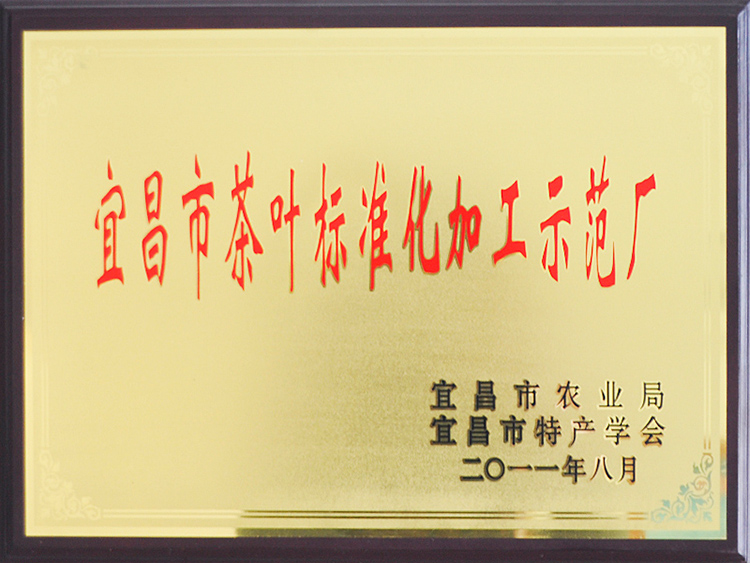 宜昌市茶叶标准化加工示范厂
宜昌市农业局
宜昌市特产学会
二〇一一年八月